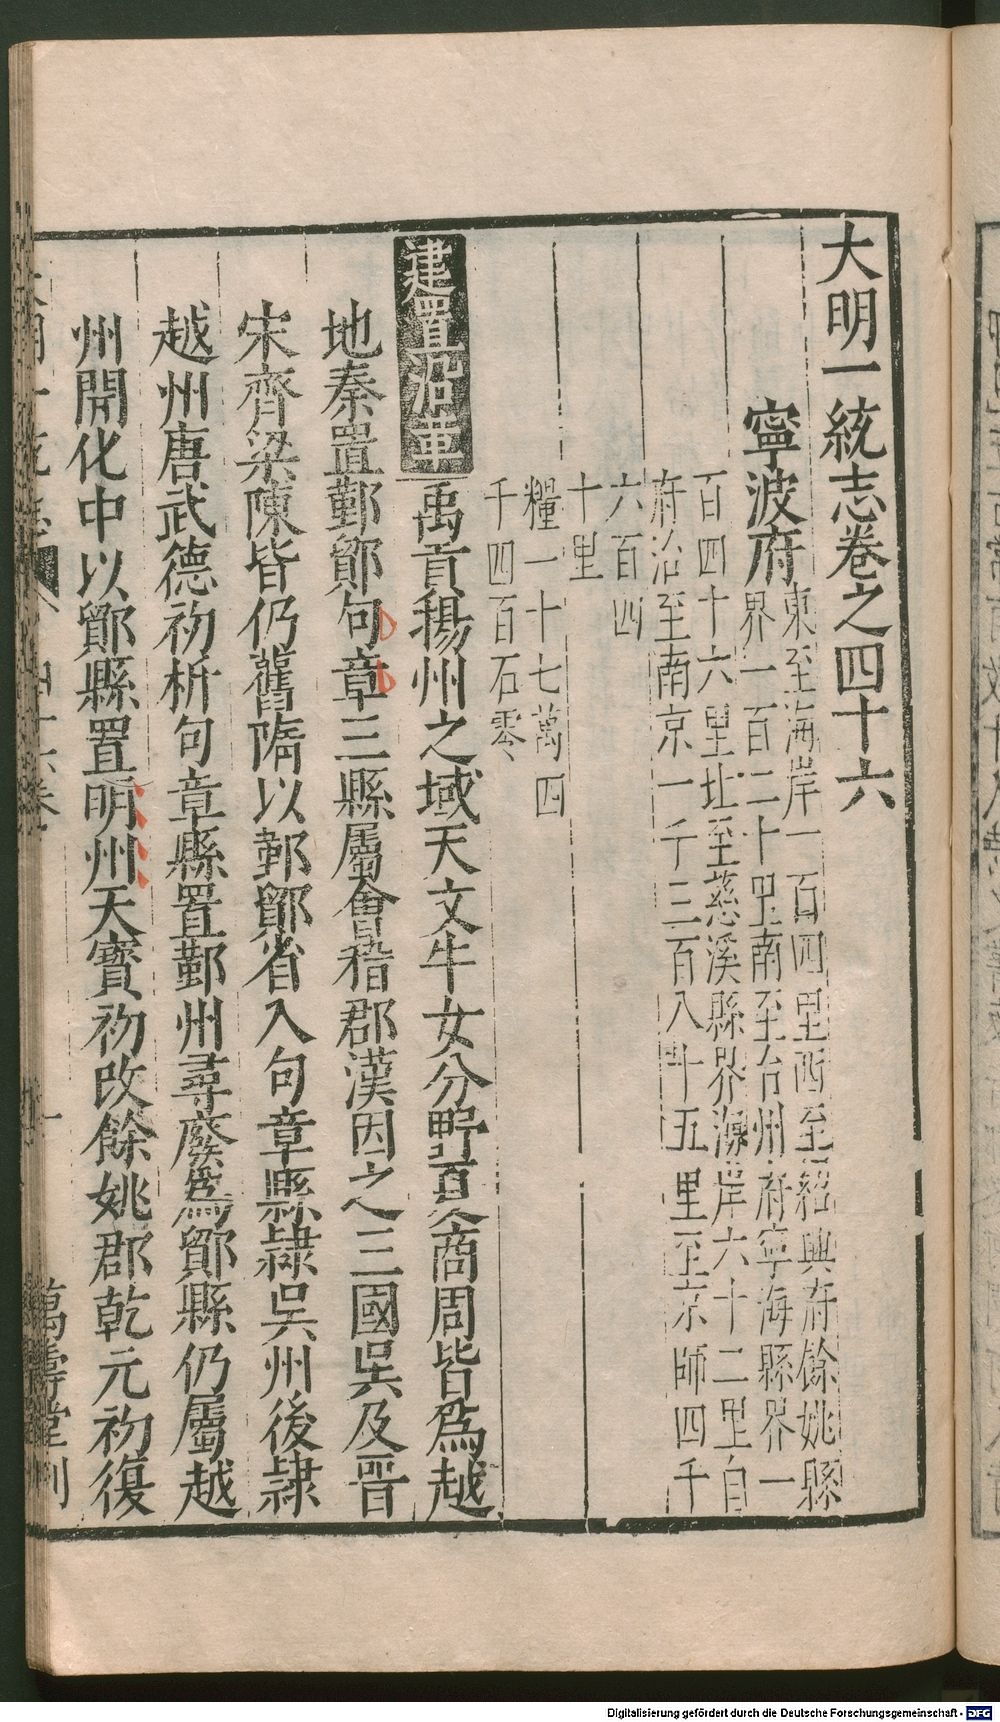 大明一統志卷之四十六
寧波府
東至海岸一百四里西至紹興府餘姚縣
界一百二十里南至台州府寧海縣界一
百四十六里北至慈溪縣界海岸六十二里自
府治至南京一千三百八十五里至京師四千
六百四
十里
糧一十七萬四
千四百石零
建置沿革
禹貢揚州之域天文牛女分野夏商周皆爲越
地秦置鄞鄮句章三縣屬會稽郡漢因之三國吳及晉
宋齊梁陳皆仍舊隋以鄞鄮省入句章縣隷吳州後隷
越州唐武德初析句章縣置鄞州尋廢爲鄮縣仍屬越
州開化中以鄮縣置明州天寶初改餘姚郡乾元初復
大明一統志
四十六卷
一
萬壽堂刊
Digitalisierung gefördert durch die Deutsche Forschungsgemeinschaft - DFG